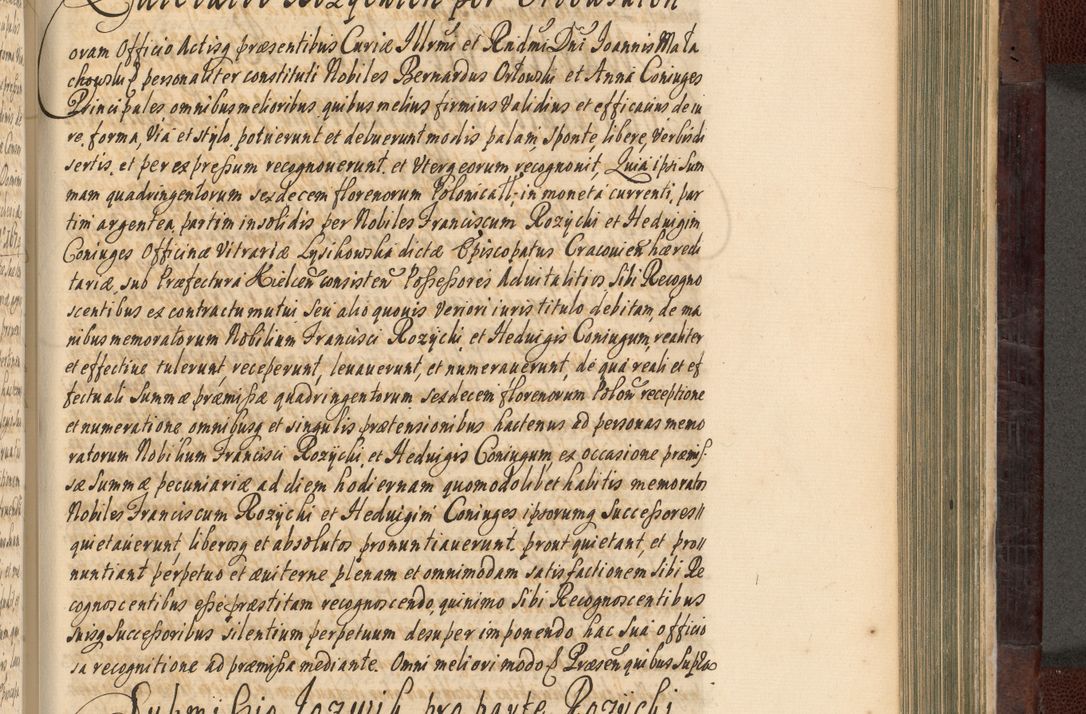 Quietatio Rozyckich per Orłowskich
oram Officio Actisq præsentibus Curiæ Illrmi et Rndmi Dni Joannis Mała
chowski personaliter constituti Nobiles Bernardus Orłowski et Anna Coniuges
Principales omnibus melioribus quibus melius firmius validius et efficacius de iu
re, forma, via et stylo potuerunt et debuerunt modis palam sponte, libere, verbis di
sertis et per expressum recognoverunt, et uterq eorum recognovit, Quia ipsi sum
mam quadringentorum sexdecem florenorum Polonicall: in moneta currenti, par
tim argentea, partim in solidis per Nobiles Franciscum Rozycki et Hedvigim
Coniuges Officinæ Vitrariæ Łysikowska dictæ Episcopatus Cracovien hæredi
tariæ, sub Præfectura Kielcen consisten Possessores Advitalitios sibi Recogno
scentibus ex contractu mutui seu alio quovis veriori iuris titulo debitam, de ma
nibus memoratorum Nobilium Francisci Rozycki et Hedvigis Coniugum, realiter
et effective tulerunt, receperunt, levaverunt, et numeraverunt, de qua reali et ef
fectuali Summæ præmissæ quadringentorum sexdecem florenorum Polon receptione
et numeratione omnibusq et singulis prætensionibus hactenus ad personas memo
ratorum Nobilium Francisci Rozycki et Hedvigis Coniugum, ex occasione præmis:
sæ Summæ pecuniariæ ad diem hodiernam quomodolibet habitis memoratos
Nobiles Franciscum Rozycki et Hedvigim Coniuges ipsorumq Successores
quietaverunt, liberosq et absolutos pronuntiaverunt, prout quietant, et pro
nuntiant perpetuo et æviterne plenam et omnimodam satisfactionem sibi Re
cognoscentibus esse præstitam recognoscendo, quinimo sibi Recognoscentibus
suisq Successoribus silentium perpetuum desuper imponendo hac sua officio
sa recognitione ad præmissa mediante. Omni meliori modo Præsen quibus supra
Submissio Jozwik pro parte Rozycki